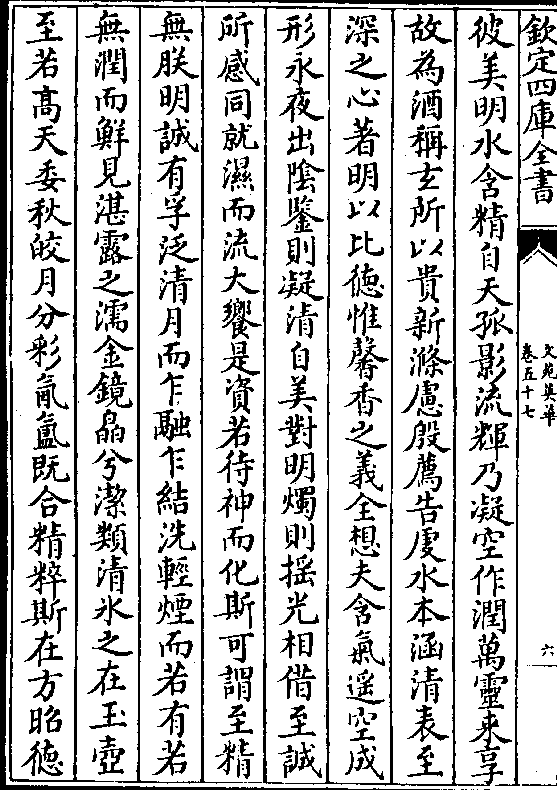 欽定四庫全書
文苑英華
卷五十七
六
彼美明水含精自天孤影流輝乃凝空作潤萬靈来享
故為酒稱玄所以貴新滌慮殷薦告虔水本涵清表至
深之心著明以比德惟馨香之義全想夫含氣遥空成
形永夜出陰鑒則凝清自美對明燭則揺光相借至誠
所感同就濕而流大饗是資若待神而化斯可謂至精
無朕明誠有孚泛清月而乍融乍結洗輕煙而若有若
無潤而鮮見湛露之濡金鏡晶兮潔類清氷之在玉壺
至若髙天委秋皎月分彩氤氲既合精粹斯在方昭德